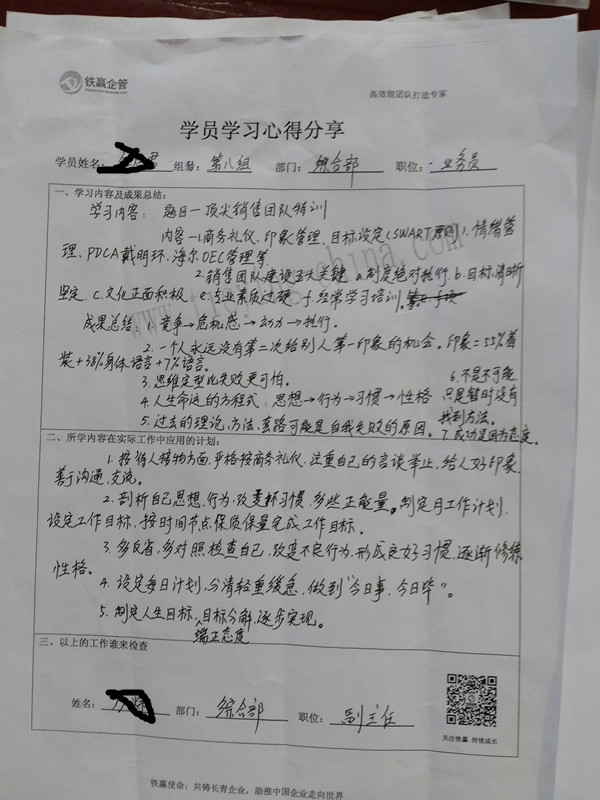 铁赢企管
高效能团队打造专家
学员学习心得分享
学员姓名: 君 组号: 第八组 部门: 综合部 职位: 业务员
一、学习内容及成果总结:
学习内容: 题目—顶尖销售团队特训
内容—1.商务礼仪、印象管理、目标设定(SWART原则)、情绪管
理、PDCA戴明环、海尔OEC管理等
2.销售团队建设五大关键 a.制度绝对执行 b.目标清晰
坚定 c.文化正面积极 e.专业素质过硬 f.经常学习培训。
成果总结: 1.竞争→危机感→动力→执行。
2.一个人永远没有第二次给别人第一印象的机会。印象=55%着
装+38%身体语言+7%语言。
3.思维定型比失败更可怕。
4.人生命运的方程式 思想→行为→习惯→性格
5.过去的理论、方法、套路可能是自我失败的原因。
6.不是不可能,
只是暂时没有
找到方法。
7.成功是因为态度。
二、所学内容在实际工作中应用的计划:
1.接待人接物方面,严格按商务礼仪,注重自己的言谈举止,给人好印象,
善于沟通,交流。
2.剖析自己思想、行为,改变坏习惯,多些正能量。制定月工作计划,
设定工作目标,按时间节点保质保量完成工作目标。
3.多反省,多对照检查自己,改变不良行为,形成良好习惯,逐渐修练
性格。
4.设定每日计划,分清轻重缓急,做到“今日事,今日毕”。
5.制定人生目标,目标分解,逐步实现。
端正态度
三、以上的工作谁来检查
姓名: 部门: 综合部 职位: 副主任
关注铁赢 持续成长
铁赢使命:共铸长青企业,助推中国企业走向世界